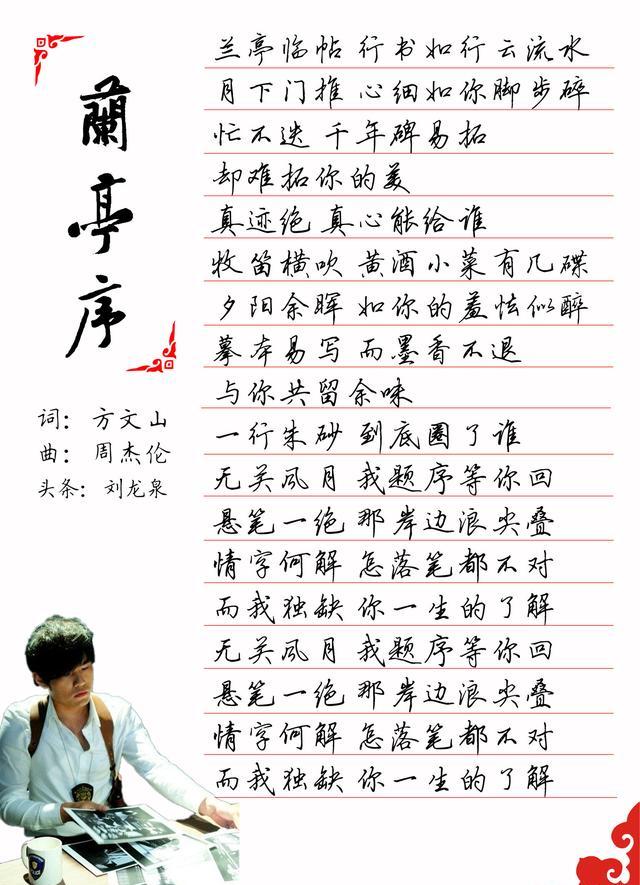 蘭亭序
词：方文山
曲：周杰伦
头条：刘龙泉
兰亭临帖 行书如行云流水
月下门推 心细如你脚步碎
忙不迭 千年碑易拓
却难拓你的美
真迹绝 真心能给谁
牧笛横吹 黄酒小菜有几碟
夕阳余晖 如你的羞怯似醉
摹本易写 而墨香不退
与你共留余味
一行朱砂 到底圈了谁
无关风月 我题序等你回
悬笔一绝 那岸边浪尖叠
情字何解 怎落笔都不对
而我独缺 你一生的了解
无关风月 我题序等你回
悬笔一绝 那岸边浪尖叠
情字何解 怎落笔都不对
而我独缺 你一生的了解